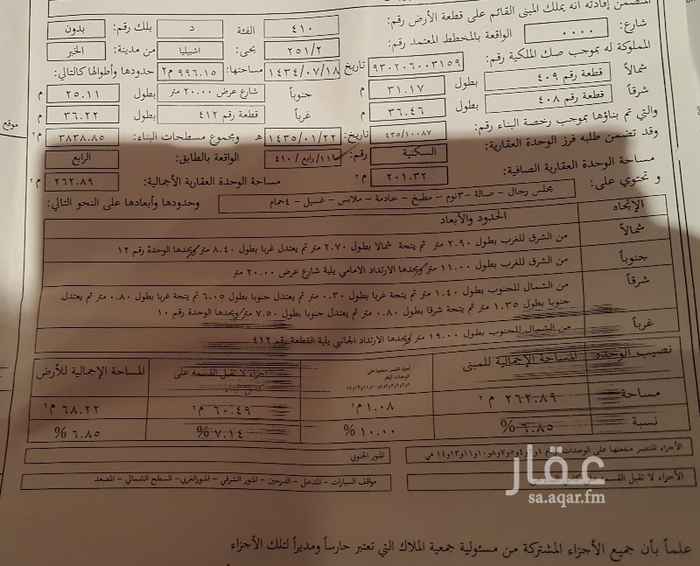 المتضمن إفادته انه يملك المبنى القائم على قطعة الأرض رقم: ٤١٠ الفئة د بلك رقم: بدون
شارع: ٠٠٠٠ الواقعة بالمخطط المعتمد رقم: ٢٥١/٢ بحي: اشبيليا من مدينة: الخبر
المملوكة له بموجب صك الملكية رقم: ٩٣٠٢٠٦٠٠٣١٥٩ تاريخ ١٤٣٤/٠٧/١٨ مساحتها: ٩٩٦.١٥ م٢ حدودها وأطوالها كالتالي:
شمالاً قطعة رقم ٤٠٩ بطول ٣١.١٧ م جنوباً شارع عرض ٢٠.٠٠ متر بطول ٢٥.١١ م
شرقاً قطعة رقم ٤٠٨ بطول ٣٦.٤٦ م غرباً قطعة رقم ٤١٢ بطول ٣٦.٢٢ م
والتي تم بناؤها بموجب رخصة البناء رقم: ٤٣٥/١٠٠٨٧ تاريخ: ١٤٣٥/٠١/٢٢ هـ وبمجموع مسطحات البناء: ٣٨٣٨.٨٥ م
وقد تضمن طلبه فرز الوحدة العقارية: السكنية رقم: ١١/رابع/٤١٠ الواقعة بالطابق: الرابع
مساحة الوحدة العقارية الصافية: ٢٠١.٣٢ م٢ مساحة الوحدة العقارية الأجمالية: ٢٦٢.٨٩ م٢
و تحتوي على: مجلس رجال - صالة - ٣نوم - مطبخ - خادمة - ملابس - غسيل - ٤حمام وحدودها وأبعادها على النحو التالي:
الإتجاه الحدود والأبعاد
شمالاً من الشرق للغرب بطول ٢.٩٠ متر ثم يتجة شمالا بطول ٢.٧٠ متر ثم يعتدل غربا بطول ٨.٤٠ متر ويحدها الوحدة رقم ١٢
جنوباً من الشرق للغرب بطول ١١.٠٠ متر ويحدها الارتداد الامامي يلية شارع عرض ٢٠.٠٠ متر
شرقاً من الشمال للجنوب بطول ١.٤٠ متر ثم يتجة غربا بطول ٠.٣٠ متر ثم يعتدل جنوبا بطول ٦.٠٥ ثم يتجة غربا بطول ٠.٨٠ متر ثم يعتدل
جنوبا بطول ١.٣٥ متر ثم يتجة شرقا بطول ٠.٨٠ متر ثم يعتدل جنوبا بطول ٧.٥٠ متر ويحدها الوحدة رقم ١٠
غرباً من الشمال للجنوب بطول ١٩.٠٠ متر ويحدها الارتداد الجانبي يلية القطعة رقم ٤١٢
نصيب الوحدة المساحة الإجمالية للمبنى اجزاء لا تقبل القسمة على المساحة الإجمالية للأرض
مساحة ٢٦٢.٨٩ م٢ ١.٠٨ م٢ ٦٠.٤٩ م٢ ٦٨.٢٢ م٢
نسبة ٦.٨٥ % ١٠.٠٠ % ٧.١٤ % ٦.٨٥ %
المنور الجنوبي
الأجزاء لا تقبل القسمة مواقف السيارات - المدخل - الدرجين - المنور الشرقي - المنور الغربي - السطح الشمالي - المصعد
علماً بأن جميع الأجزاء المشتركة من مسئولية جمعية الملاك التي تعتبر حارساً ومديراً لتلك الأجزاء
موقع
عقار
sa.aqar.fm